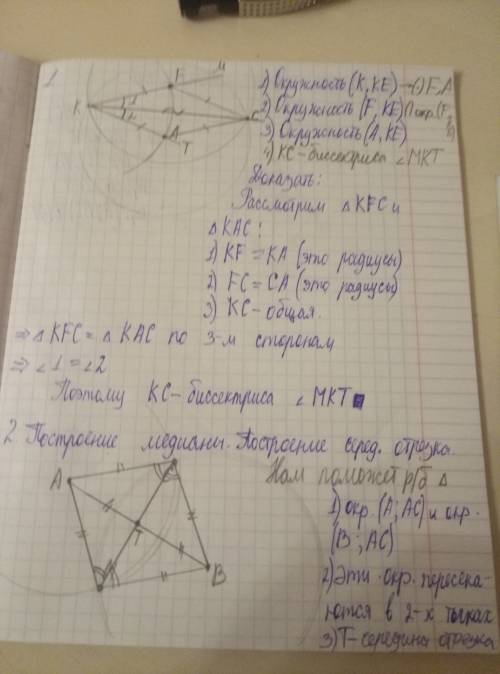 1
K
F
M
C
A
T
1) Окружность (K, KE) → () F, A
2) Окружность (F, KE) ∩ окр. (F,
3) Окружность (A, KE)
4) KC - биссектриса ∠MKT
Доказать:
Рассмотрим △KFC и
△KAC:
1) KF = KA (это радиусы)
2) FC = CA (это радиусы)
3) KC - общая.
⇒ △KFC = △KAC по 3-м сторонам
⇒ ∠1 = ∠2
Поэтому KC - биссектриса ∠MKT
2. Построение медианы. Построение серед. отрезка.
Нам поможет р/б △
A
T
B
1) окр. (A; AC) и окр.
(B; AC)
2) Эти окр. пересека-
ются в 2-х тычках
3) T - середина отрезка